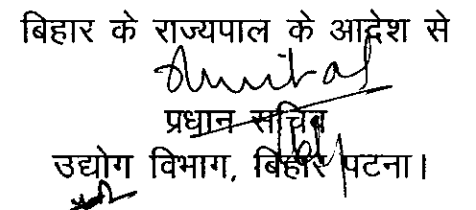 बिहार के राज्यपाल के आदेश से
प्रधान सचिव
उद्योग विभाग, बिहार पटना।